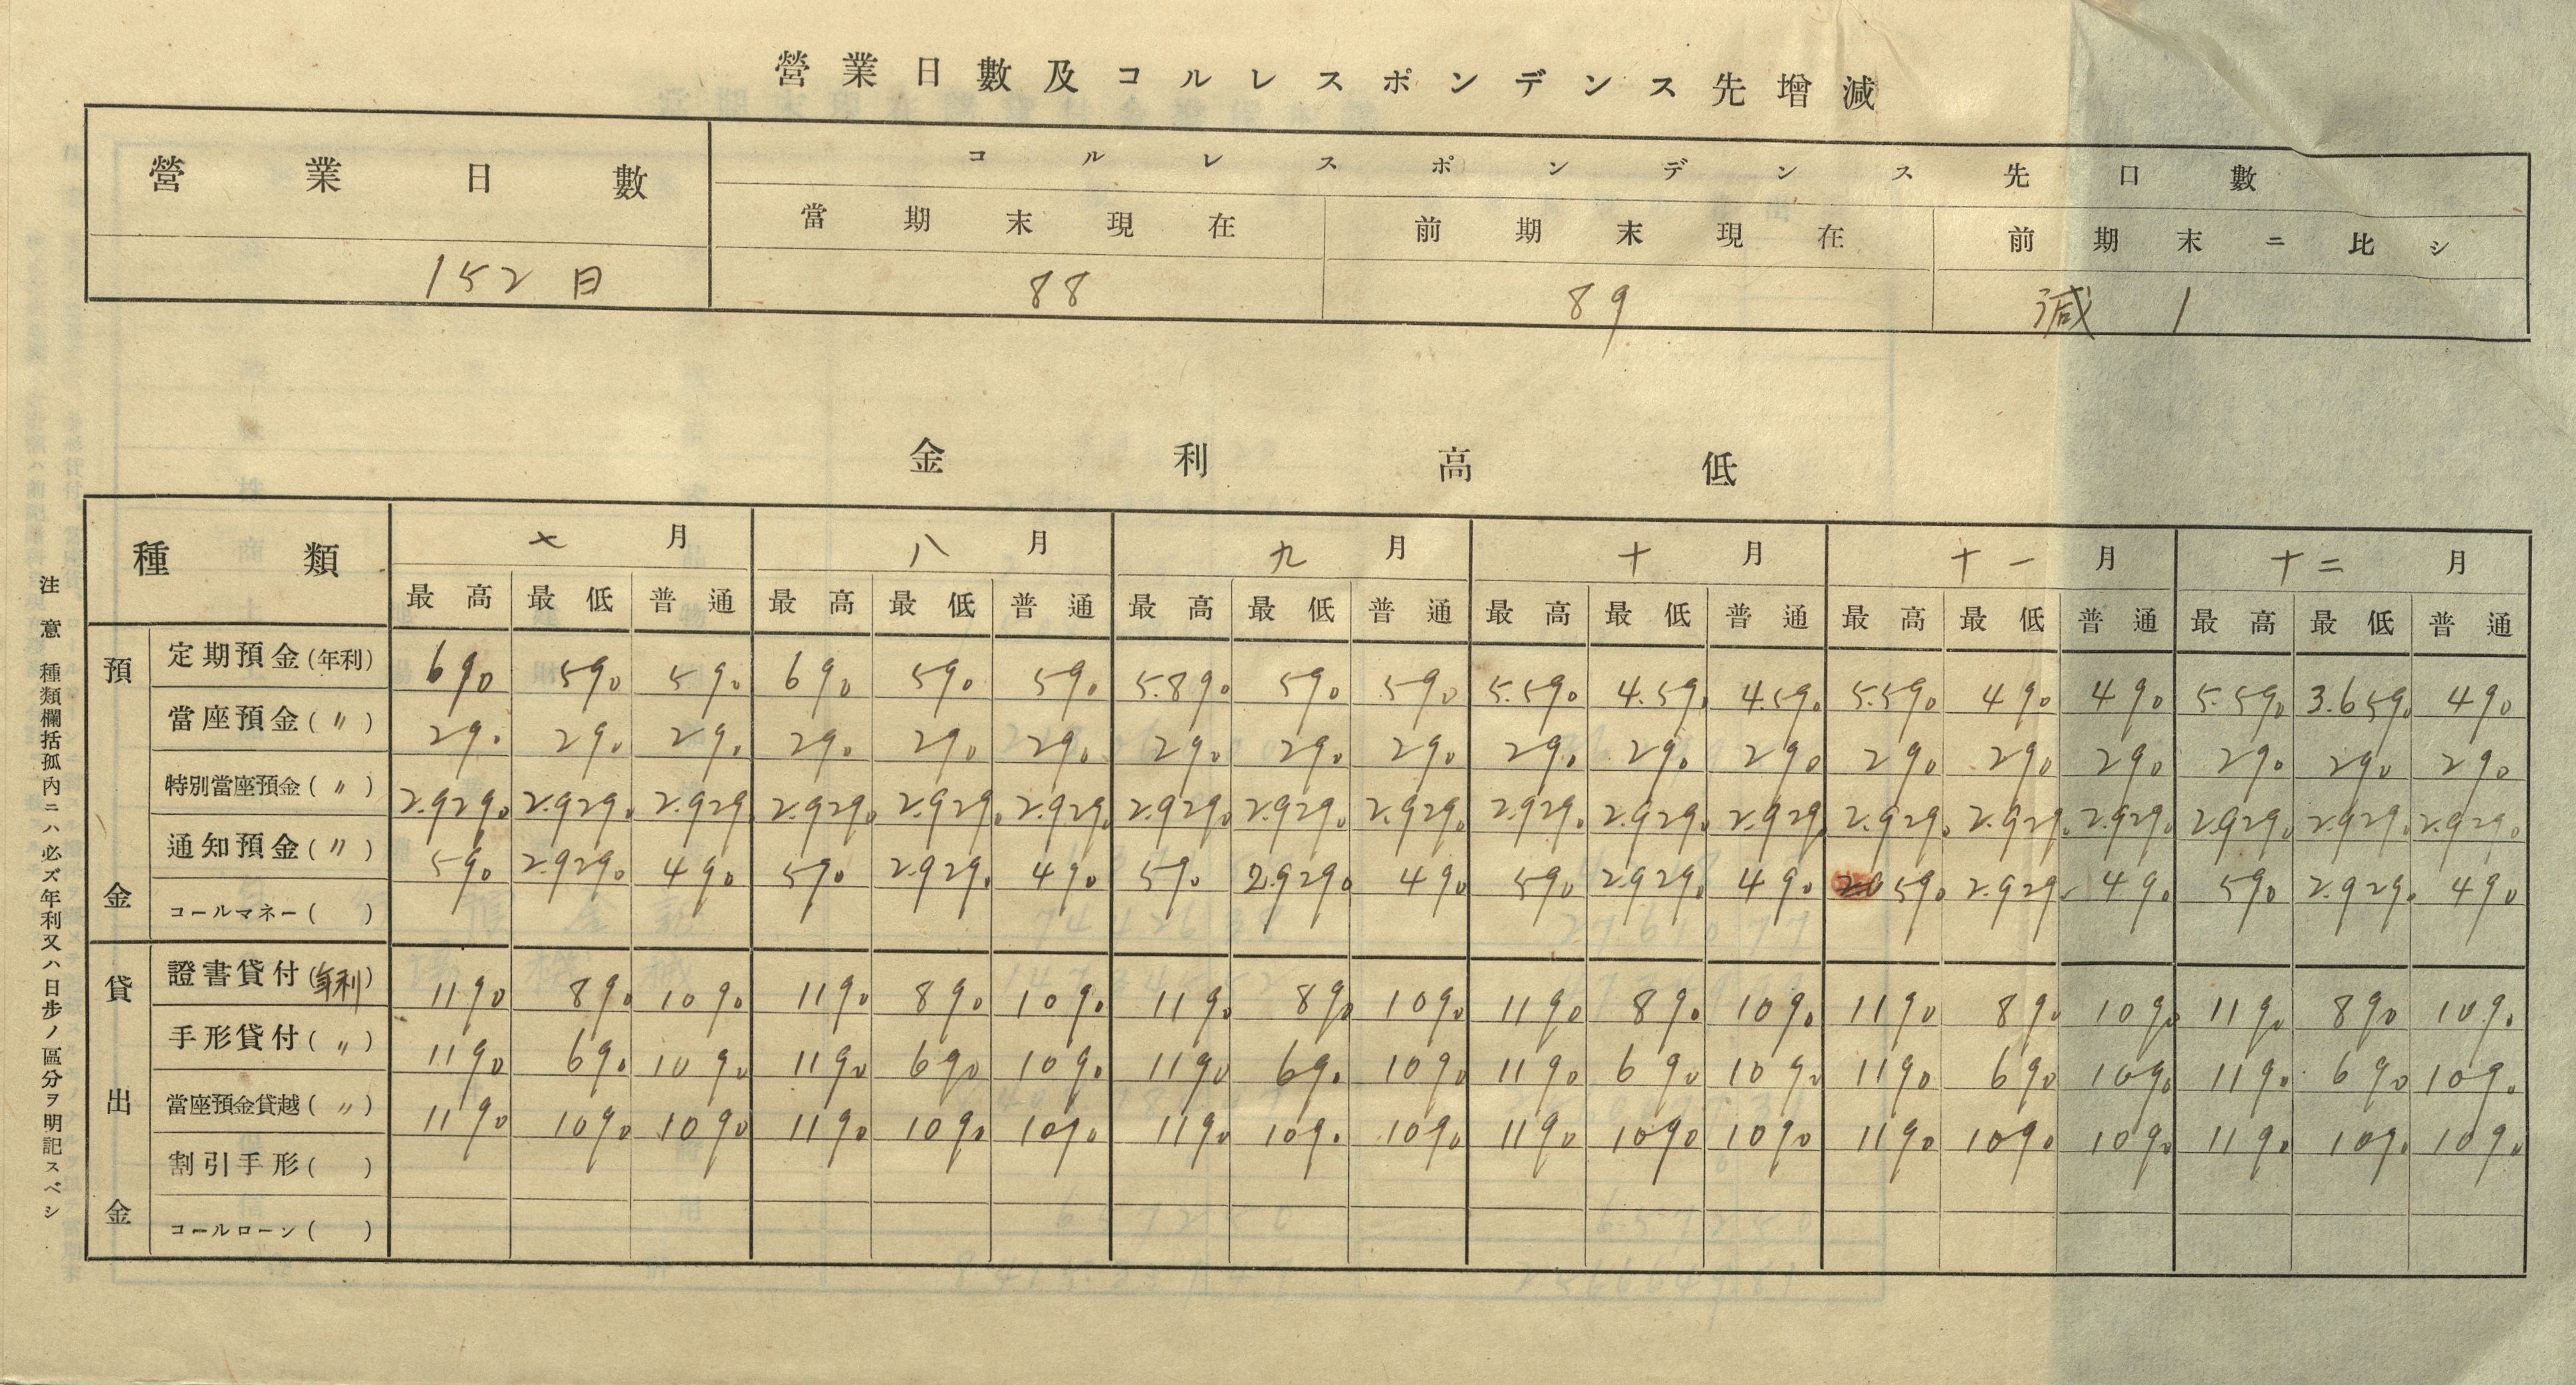 營業日數及コルレスポンデンス先增減
營業日數 コルレスポンデンス先口數
當期末現在 前期末現在 前期末ニ比シ
152日 88 89 減 1
金利高低
種類 七月 八月 九月 十月 十一月 十二月
最高 最低 普通 最高 最低 普通 最高 最低 普通 最高 最低 普通 最高 最低 普通 最高 最低 普通
預金
定期預金(年利) 6% 5% 5% 6% 5% 5% 5.8% 5% 5% 5.5% 4.5% 4.5% 5.5% 4% 4% 5.5% 3.65% 4%
當座預金(〃) 2% 2% 2% 2% 2% 2% 2% 2% 2% 2% 2% 2% 2% 2% 2% 2% 2% 2%
特別當座預金(〃) 2.92% 2.92% 2.92% 2.92% 2.92% 2.92% 2.92% 2.92% 2.92% 2.92% 2.92% 2.92% 2.92% 2.92% 2.92% 2.92% 2.92% 2.92%
通知預金(〃) 5% 2.92% 4% 5% 2.92% 4% 5% 2.92% 4% 5% 2.92% 4% 5% 2.92% 4% 5% 2.92% 4%
コールマネー( )
貸出金
證書貸付(年利) 11% 8% 10% 11% 8% 10% 11% 8% 10% 11% 8% 10% 11% 8% 10% 11% 8% 10%
手形貸付(〃) 11% 6% 10% 11% 6% 10% 11% 6% 10% 11% 6% 10% 11% 6% 10% 11% 6% 10%
當座預金貸越(〃) 11% 10% 10% 11% 10% 10% 11% 10% 10% 11% 10% 10% 11% 10% 10% 11% 10% 10%
割引手形( )
コールローン( )
注意 種類欄括孤內ニハ必ズ年利又ハ日步ノ區分ヲ明記スベシ